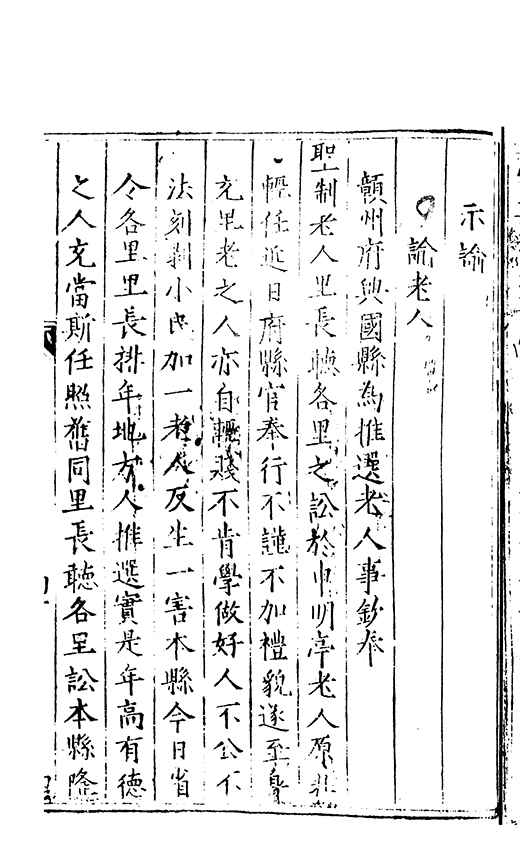 示諭
諭老人
贛州府興國縣為推選老人事欽奉
聖制老人里長聽各里之訟於申明亭老人原非
輕任近日府縣官奉行不謹不加禮貌遂至身
充里老之人亦自輕賤不肯學做好人不公不
法刻剥小民加一老人反生一害本縣今日省
令各里里長排年地方人推選實是年高有德
之人充當斯任照舊同里長聽各里訟本縣隆